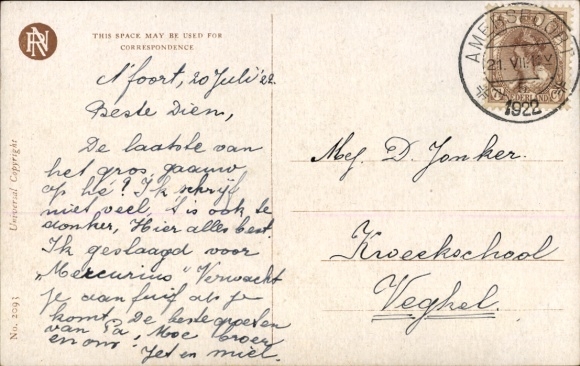 RN
THIS SPACE MAY BE USED FOR
CORRESPONDENCE
A'foort, 20 Juli '22.
Beste Dien,
De laatste van
het gros, gaauw
op hé? Ik schrijf
niet veel, 't is ook te
donker, Hier alles best.
Ik geslaagd voor
„Mercurius" Verwacht
je aan fuif als je
komt. De beste groeten
van Pa, Moe broer
en ons. Jet en miel.
Universal Copyright
No. 2093
AMERSFOORT
21. VII.
1922
NEDERLAND
Mej. D. Jonker.
Kweekschool
Veghel.